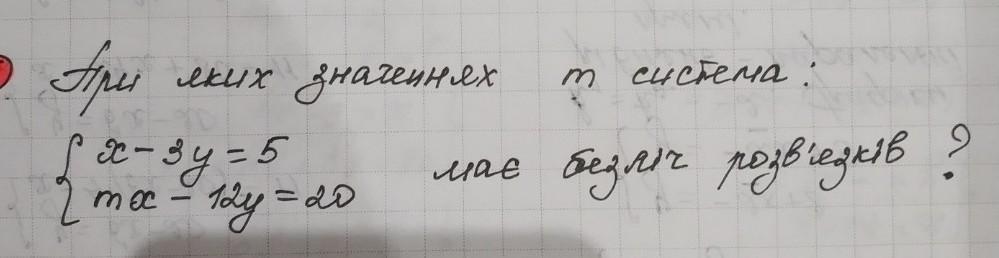 При яких значеннях m система:
{ x - 3y = 5
mx - 12y = 20 має безліч розв'язків ?